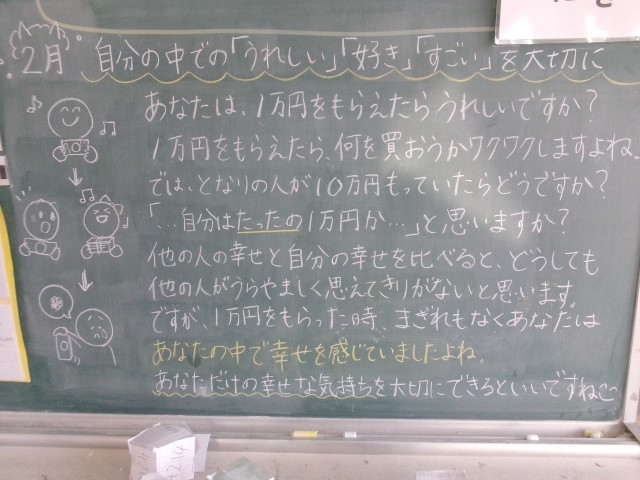 2月 自分の中での「うれしい」「好き」「すごい」を大切に
あなたは、1万円をもらえたらうれしいですか?
1万円をもらえたら、何を買おうかワクワクしますよね。
では、となりの人が10万円もっていたらどうですか?
「…自分はたったの1万円か…」と思いますか?
他の人の幸せと自分の幸せを比べると、どうしても
他の人がうらやましく思えてきりがないと思います。
ですが、1万円をもらった時、まぎれもなくあなたは
あなたの中で幸せを感じていましたよね。
あなただけの幸せな気持ちを大切にできるといいですね